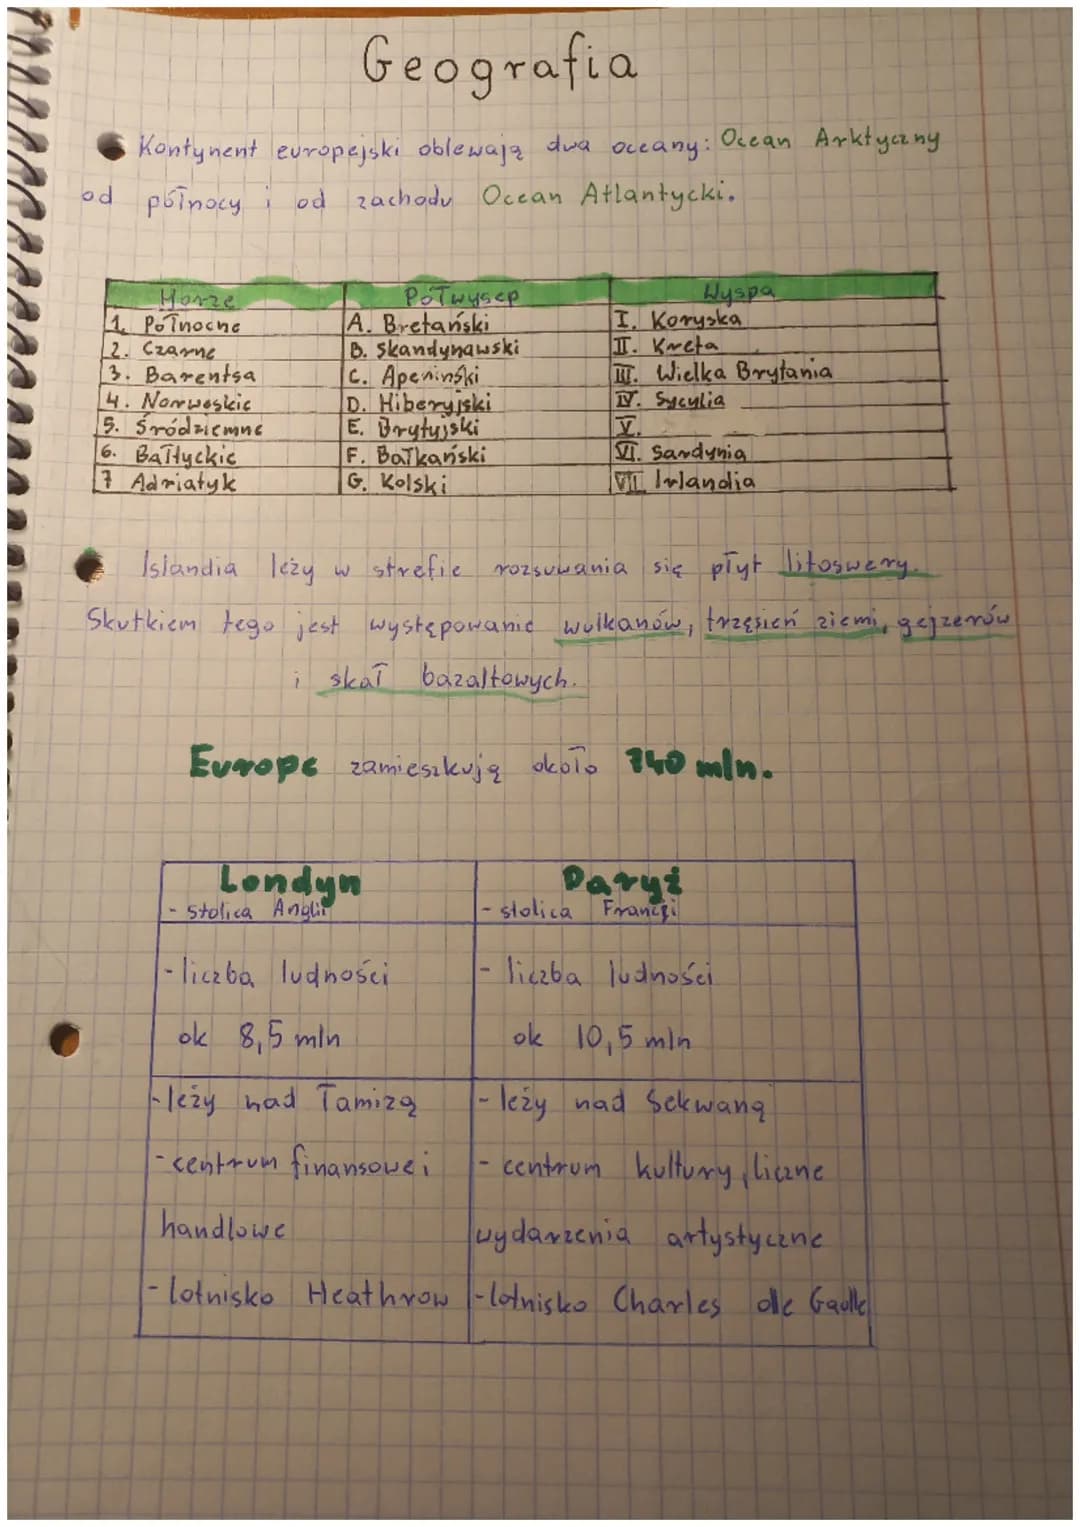 Geografia
Kontynent europejski oblewają dwa oceany: Ocean Arktyczny
od północy i od zachodu Ocean Atlantycki.
Morze Półwysep Wyspa
1. Północne A. Bretański I. Koryska
2. Czarne B. Skandynawski II. Kreta
3. Barentsa C. Apeniński III. Wielka Brytania
4. Norweskie D. Hiberyjski IV. Sycylia
5. Śródziemne E. Brytyjski V.
6. Bałtyckie F. Bałkański VI. Sardynia
7 Adriatyk G. Kolski VII Irlandia
Islandia leży w strefie rozsuwania się płyt litoswery.
Skutkiem tego jest występowanie wulkanów, trzęsień ziemi, gejzerów
i skał bazaltowych.
Europe zamieszkują około 740 mln.
Londyn Paryż
- stolica Anglii - stolica Francji
- liczba ludności - liczba ludności
ok 8,5 mln ok 10,5 mln
- leży nad Tamizą - leży nad Sekwaną
- centrum finansowe i - centrum kultury, liczne
handlowe wydarzenia artystyczne
- lotnisko Heathrow - lotnisko Charles de Gaulle